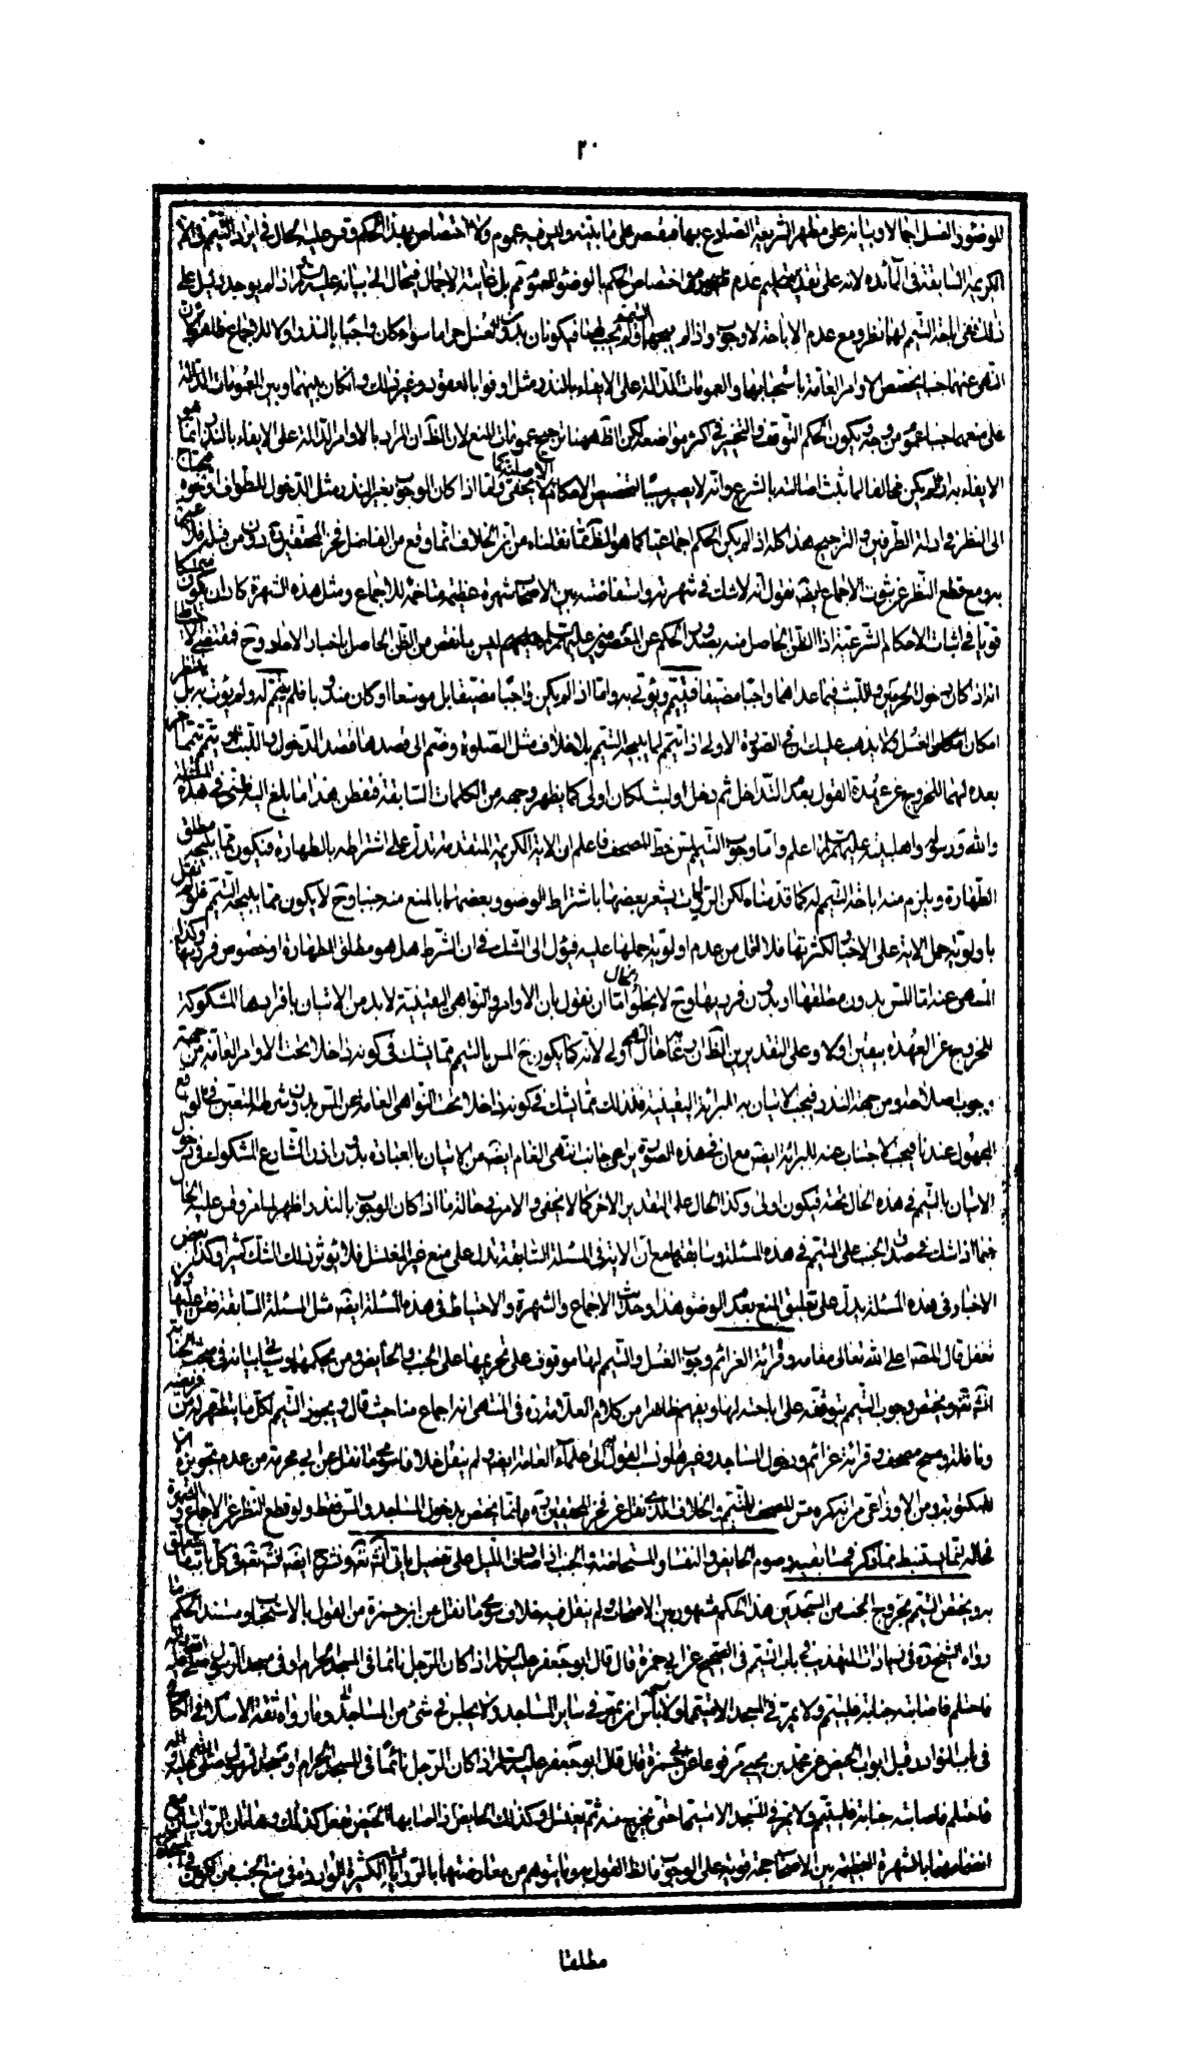 ٢٠
للوضوء والغسل اجمالا وبيانه على مظهر الشريعة الصادع بها فيقتصر على ما بينه وليس فيه عموم ولا اختصاص بهذا الحكم وقس عليه الحال في ايراد التيمم في الآية
الكريمة السابقة في المائدة لانه على تقدير تسليم عدم اختصاص الحكم بالوضوء لا عموم ثم بل غايته الاجمال فيحال الى بيانه عليه السلام واذ لم يوجد دليل على
ذلك ففي اباحة التيمم لهما نظر ومع عدم الاباحة لا وجوب واذا لم يبحهما التيمم ولم يجب لهما فيكونان بدون الغسل حراما سواء كان واجبا بالنذر او لا للاجماع ظاهرا
النهي عنهما جنبا يخصص الاوامر العامة باستحبابهما والعمومات الدالة على الايفاء بالنذر مثل اوفوا بالعقود وغير ذلك وان كان بينهما وبين العمومات الدالة
على منعهما جنبا عموم من وجه ويكون الحكم التوقف والتخيير في اكثر مواضعه لكن الظاهر هنا ترجيح عمومات المنع لان الظاهر ان المراد بالاوامر الدالة على الايفاء بالنذر انما هو
الايفاء به اذا لم يكن مخالفا لما يثبت اصالته بالشرع وانه لا يصير سببا لتخصيص الاحكام الاصلية كما لا يخفى واما اذا كان الوجوب بغير النذر مثل الدخول للطواف او نحوه محتاج
الى النظر في ادلة الطرفين والترجيح هذا كله اذا لم يكن الحكم اجماعيا كما هو الظاهر مما نقلناه من ان الخلاف انما وقع من الفاضل فخر المحققين دون من قبله فلا عبرة
به ومع قطع النظر عن ثبوت الاجماع ايضا نقول انه لا شك في شهرته واستفاضته بين الاصحاب شهرة عظيمة متاخمة للاجماع ومثل هذه الشهرة كاد ان يكون متمسكا
قويا في اثبات الاحكام الشرعية اذ الظن الحاصل منه بصدور الحكم عن المعصومين عليهم السلام ليس بانقص من الظن الحاصل باخبار الآحاد وح فمقتضى الاحتياط
انه اذا كان دخول الحرمين واللبث فيما عداهما واجبا مضيقا فليتيمم ويؤتى به واما اذا لم يكن واجبا مضيقا بل موسعا او كان مندوبا فلم يتيمم له ولم يؤت به بل ينتظر
امكان الغسل ولا يذهب عليك ان في الصورة الاولى اذا تيمم لما يبيحه التيمم بلا خلاف مثل الصلوة وضم الى قصدها قصد الدخول واللبث
بعده لهما للخروج عن عهدة القول بعدم التداخل ثم دخل او لبث لكان اولى كما يظهر وجهه من الكلمات السابقة فتفطن هذا ما بلغ اليه ظني في هذه المسئلة
والله ورسوله واهل بيته عليهم السلام اعلم واما وجوب التيمم لمس خط المصحف فاعلم ان الآية الكريمة المتقدمة تدل على اشتراطه بالطهارة فيكون مما يبيحه مطلق
الطهارة ويلزم منه اباحة التيمم له كما قدمناه لكن الروايات يشعر بعضها باشتراط الوضوء وبعضها بالمنع منه جنبا وح لا يكون مما يبيحه التيمم فلو لم نقل
باولوية حمل الآية على الاخبار لكثرتها فلا اقل من عدم اولوية حملها عليه فيؤل الى الشك في ان الشرط هل هو مطلق الطهارة او خصوص فرديها وكذا
المنهي عنه اما اللمس بدون مطلقها او بدون فرديها وح لا يخلو الحال اما ان نقول بان الاوامر والنواهي اليقينية لا بد من الاتيان بافرادها المشكوكة
للخروج عن العهدة بيقين او لا وعلى التقديرين الظاهر رعاية حال النهي اولى لانه كما يكون ح المس بالتيمم مما يشك في كونه داخلا تحت الاوامر العامة من جهة
وجوب اصلاحه ومن جهة النذر فيجب الاتيان به للبرائة اليقينية فلذلك مما يشك في كونه داخلا تحت النواهي العامة عن المس بدون شرط المتعين في الواقع
المجهول عندنا فيجب الاجتناب عنه للبرائة ايضا مع ان في هذه الصورة يراعى جانب النهي العام ايضا من الاتيان بالعبادة بدون اذن الشارع المشكوك في دخول
الاتيان بالتيمم في هذه الحال تحته فيكون اولى وكذا الحال على التقدير الآخر كما لا يخفى والامر في حالة ما اذا كان الوجوب بالنذر اظهر لما مر وقس عليه الحال
فيما اذا شك في صدق الجنب على المتيمم في هذه المسئلة وسابقتها مع ان الآية في المسئلة السابقة تدل على منع غير المغتسل فلا يؤثر ذلك الشك كثيرا وكذا بعض
الاخبار في هذه المسئلة يدل على تعليق المنع بعدم الوضوء هذا وحديث الاجماع والشهرة والاحتياط في هذه المسئلة ايضا مثل المسئلة السابقة فقس عليها ولا
تغفل قال المصنف اعلى الله تعالى مقامه وقرائة العزائم وجوب الغسل والتيمم لها موقوف على تحريمها على الجنب والحائض ومن بحكمها وسيجيء بيانه في مبحث الجنابة ان شاء
الله تعالى ويختص وجوب التيمم بتوقفه على اباحته لها ويفهم ظاهرا من كلام العلامة ره في المنتهى انه اجماع منا حيث قال ويجوز التيمم لكل ما يتطهر له من فريضة
ونافلة ومس مصحف وقرائة عزائم ودخول المساجد وغيرها ونسب القول الى علماء العامة ايضا ولم ينقل خلافا سوى ما نقل عن ابي مخرمة من عدم تجويزه الا
للمكتوبة ومن الاوزاعي من انه كره مس المصحف للمتيمم والخلاف الذي نقل عن فخر المحققين ره انما يختص بدخول المساجد والمس فقط ولو قطع النظر عن الاجماع والشهرة
فحاله انما يستنبط مما ذكر فيما سابقيه وصوم الحائض والنفساء والمستحاضة والجنب اذا صادف الليل على تفصيل يأتي ان شاء الله تعالى ونشرح ايضا ان شاء الله تعالى في كل باب ما يتعلق
به ويختص التيمم بخروج الجنب من المسجدين هذا الحكم مشهور بين الاصحاب ولم ينقل فيه خلاف سوى ما نقل من ابن حمزة من القول بالاستحباب ومستند الحكم ما
رواه الشيخ ره في زيادات التهذيب في باب التيمم في الصحيح عن ابي حمزة قال قال ابو جعفر عليه السلام اذا كان الرجل نائما في المسجد الحرام او في مسجد الرسول صلى الله عليه وآله
فاحتلم فاصابته جنابة فليتيمم ولا يمر في المسجد الا متيمما ولا بأس ان يمر في سائر المساجد ولا يجلس في شيء من المساجد وما رواه ثقة الاسلام في الكافي
في باب النوادر قبل ابواب الحيض عن محمد بن يحيى مرفوعا عن ابي حمزة قال قال ابو جعفر عليه السلام اذا كان الرجل نائما في المسجد الحرام او مسجد الرسول صلى الله عليه وآله
فاحتلم فاصابته جنابة فليتيمم ولا يمر في المسجد الا متيمما حتى يخرج منه ثم يغتسل وكذلك الحائض اذا اصابها الحيض تفعل كذلك وهاتان الروايتان مع
انضمامهما بالشهرة العظيمة بين الاصحاب حجة قوية على الوجوب
مطلقا